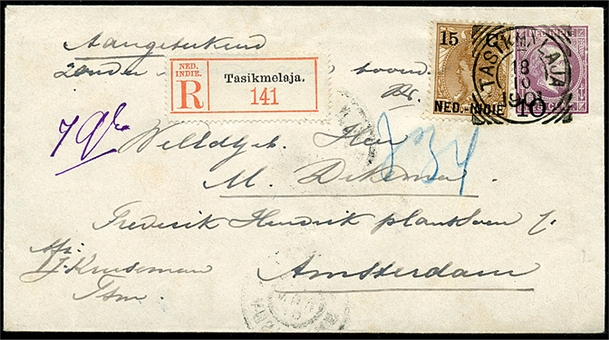 Aangetekend
zonder
NED. INDIE.
R
Tasikmelaja.
141
15
NED.-INDIE
TASIKMALAJA
18
10
10
79r
834
WelEdGeb. Heer
M. Dekema
Frederik Hendrik plantsoen
Amsterdam
Afz.
Kruseman
Tsm.